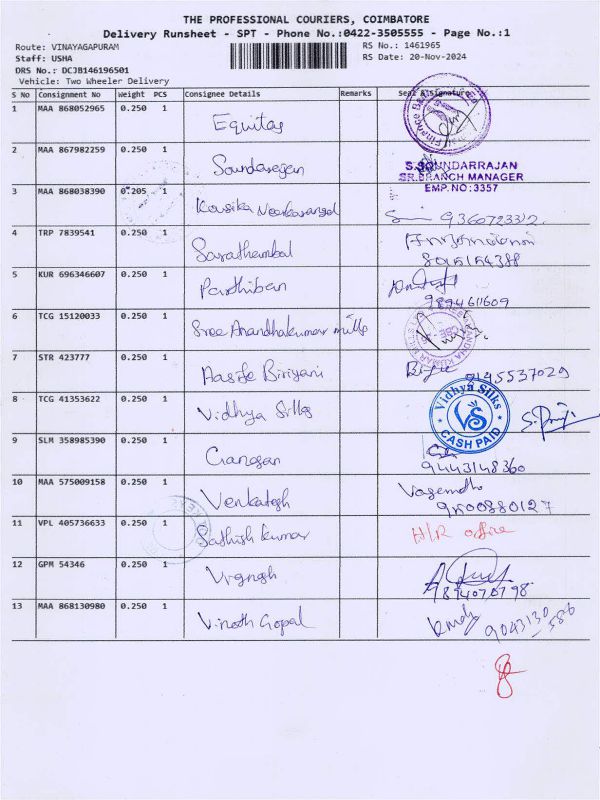 THE PROFESSIONAL COURIERS, COIMBATORE
Delivery Runsheet - SPT - Phone No.:0422-3505555 - Page No.:1
Route: VINAYAGAPURAM
RS No.: 1461965
Staff: USHA
RS Date: 20-Nov-2024
DRS No.: DCJB146196501
Vehicle: Two Wheeler Delivery
S No Consignment No Weight PCS Consignee Details Remarks Seal &Signature
1 MAA 868052965 0.250 1 Equitas
2 MAA 867982259 0.250 1 Soundarajan S.SOUNDARRAJAN
SR.BRANCH MANAGER
EMP.NO:3357
3 MAA 868038390 0.205 1 Kousika
4 TRP 7839541 0.250 1 Sarathambal
5 KUR 696346607 0.250 1 Parthiban
9894611609
6 TCG 15120033 0.250 1 Sree Anandhakumar mills
7 STR 423777 0.250 1 Aasife Biriyani
9145537029
8 TCG 41353622 0.250 1 Vidhya Silks Vidhya Silks
VS
CASH PAID
9 SLM 358985390 0.250 1 Ganesan
9443148360
10 MAA 575009158 0.250 1 Venkatesh
9500880127
11 VPL 405736633 0.250 1 Sathish kumar H/R office
12 GPM 54346 0.250 1 Vignesh
13 MAA 868130980 0.250 1 Vinoth Gopal
9043130
586